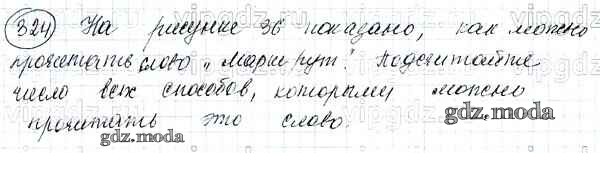 324) На рисунке 36 показано, как можно
прочитать слово „Маршрут". Подсчитайте
число всех способов, которыми можно
прочитать это слово.
gdz.moda
gdz.moda
gdz.moda